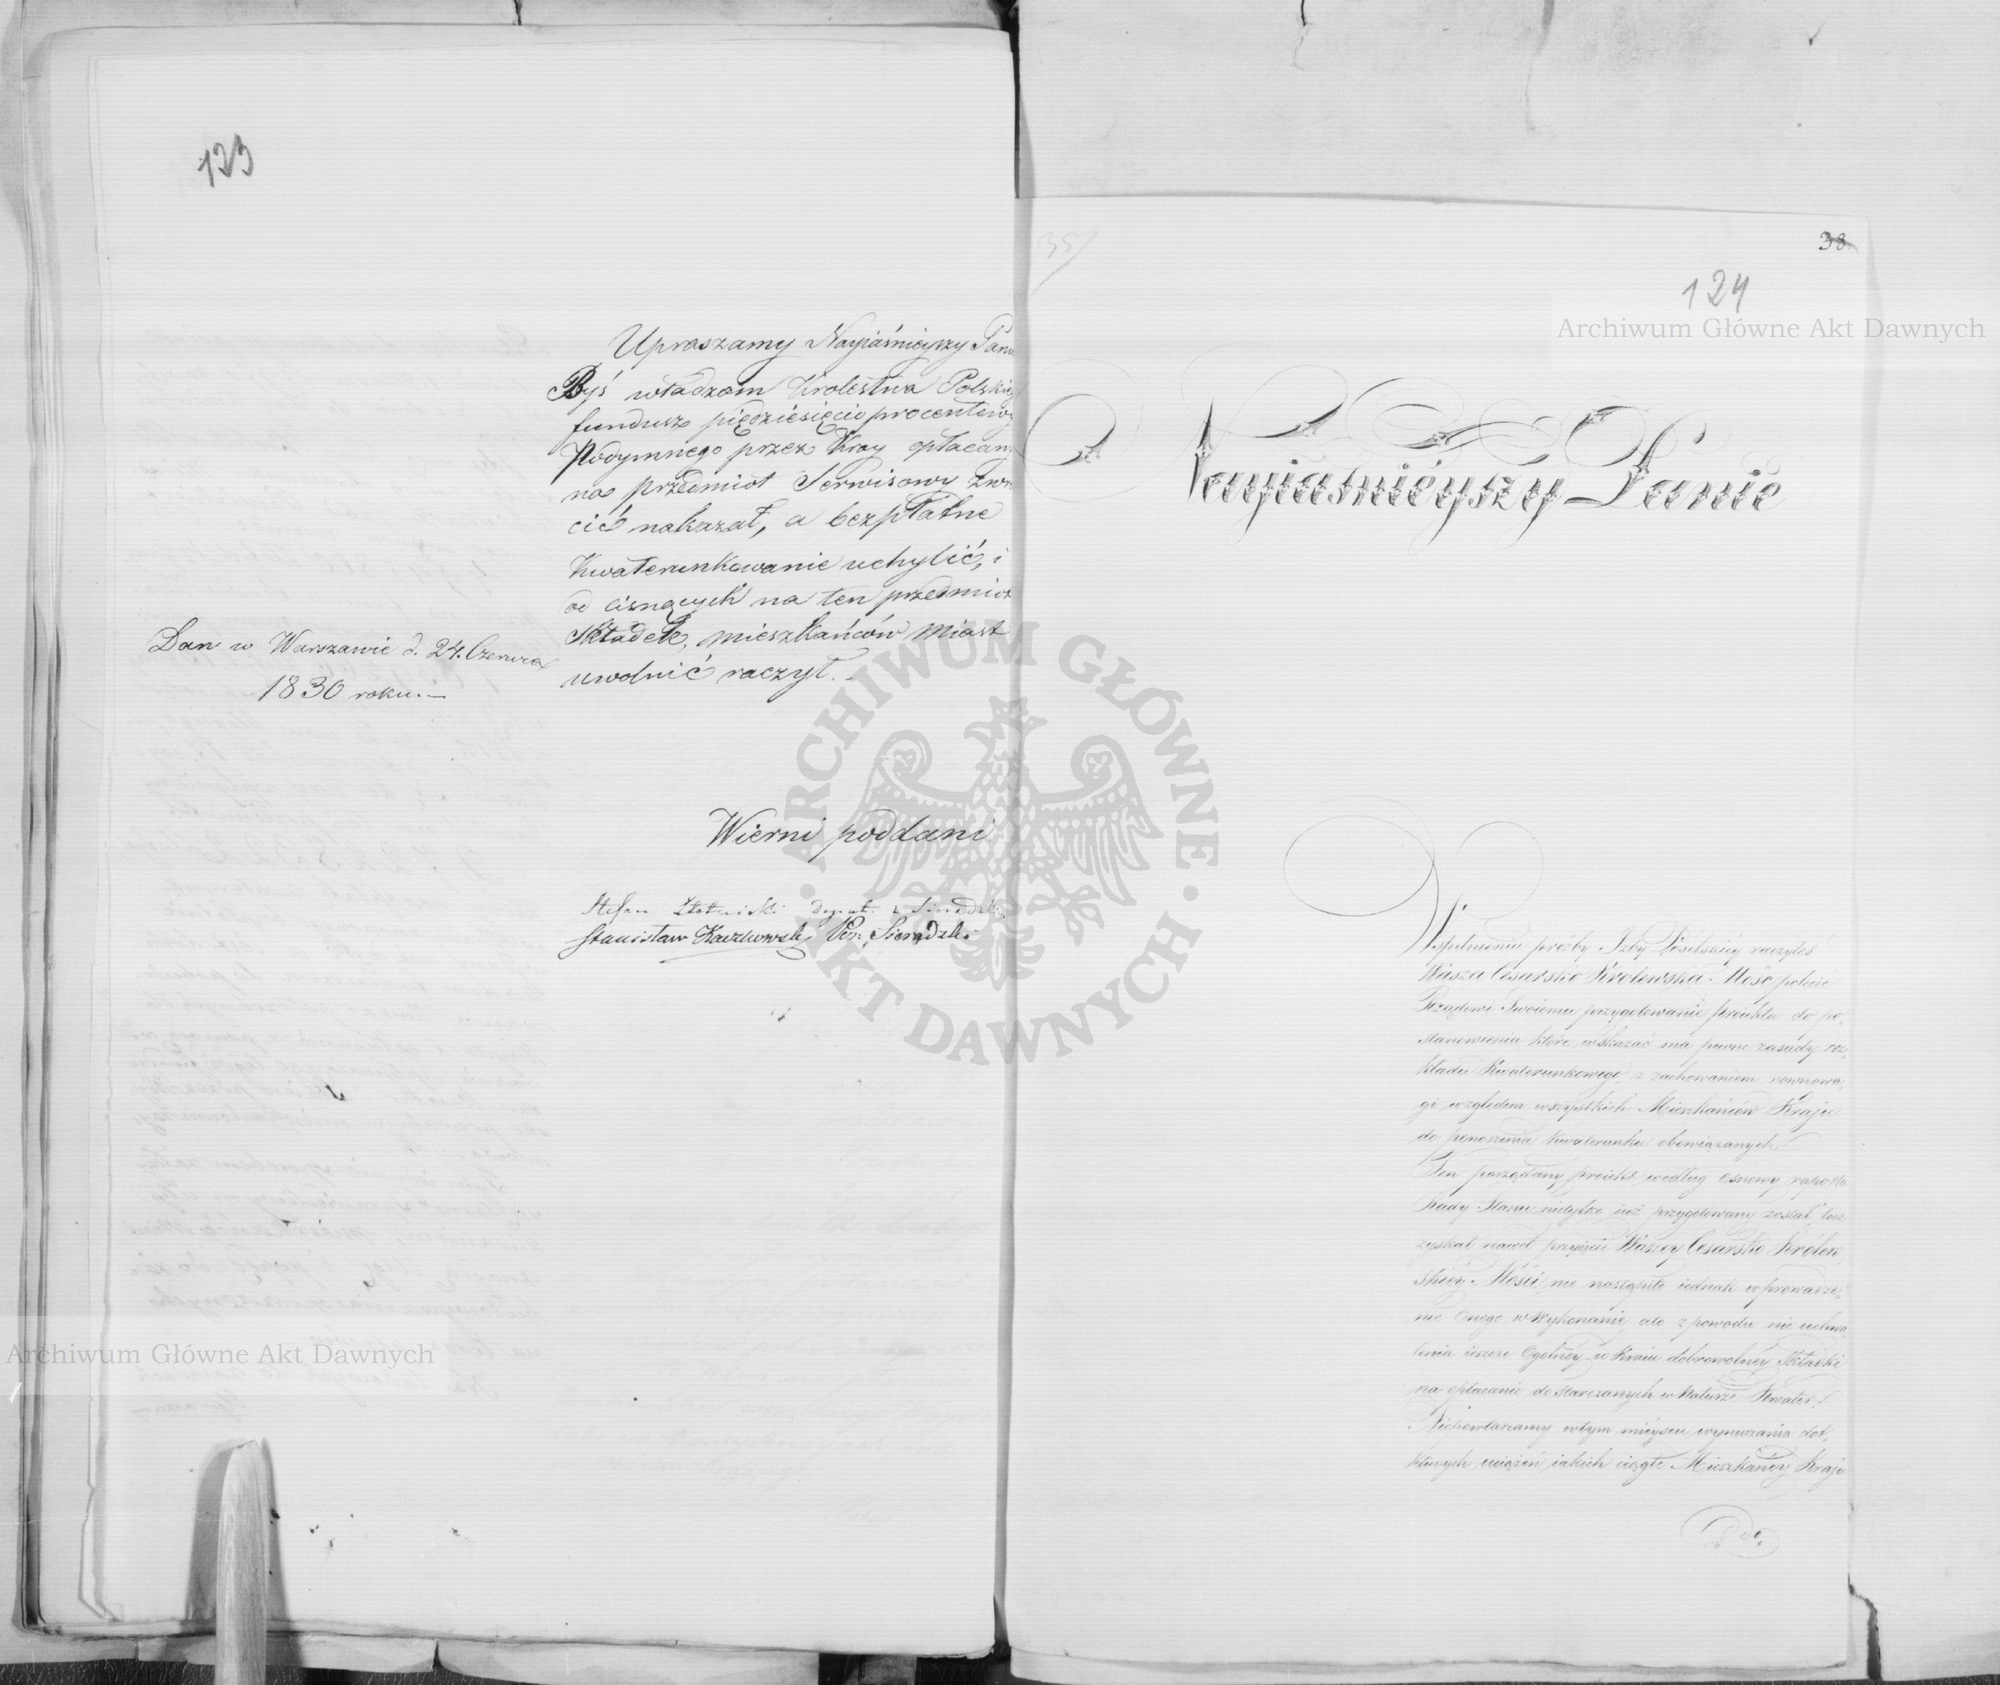 123
Upraszamy Nayiaśnieyszy Panie
Byś władzom Krolestwa Polskiego
fundusz pięćdziesięcio procentowy
Podymnego przez Kray opłacany
na przedmiot Serwisowy zwró
cić nakazał, a bezpłatne
Kwaterunkowanie uchylić, i
od cisnących na ten przedmiot
Składek, mieszkańców Miast
uwolnić raczył. –
Dan w Warszawie d. 24. Czerwca
1830 roku. –
Wierni poddani
Stefan Złotnicki Deput. z Sieradzki
Stanisław Kaczkowski Pos. Sieradzki
35/
38
124
Nayiaśnieyszy Panie
W spełnieniu prośby Izby Poselskiey raczyłeś
Wasza Cesarsko Królewska Mość polecić
Rządowi Swoiemu przygotowanie proiektu do po,
stanowienia które wskazać ma pewne zasady roz,
kładu Kwaterunkowego, z zachowaniem rownowa,
gi względem wszystkich Mieszkańców Kraju
do ponoszenia kwaterunku obowiązanych.
Ten pożądany proiekt według osnowy raportu
Rady Stanu nietylko iuż przygotowany został, lecz
zyskał nawet przyięcie Waszey Cesarsko Królew
skiey Mości, nie nastąpiło iednak wprowadze,
nie Onego w Wykonanie, ale z powodu nie uchwa,
lenia ieszcze Ogólney w Kraiu dobrowolney Składki
na opłacanie dostarczanych w Naturze Kwater.
Niepowtarzamy w tym mieyscu wynurzania dot,
kliwych uciążeń iakich ciągle Mieszkańcy Kraju
Archiwum Główne Akt Dawnych
Archiwum Główne Akt Dawnych
ARCHIWUM GŁÓWNE AKT DAWNYCH